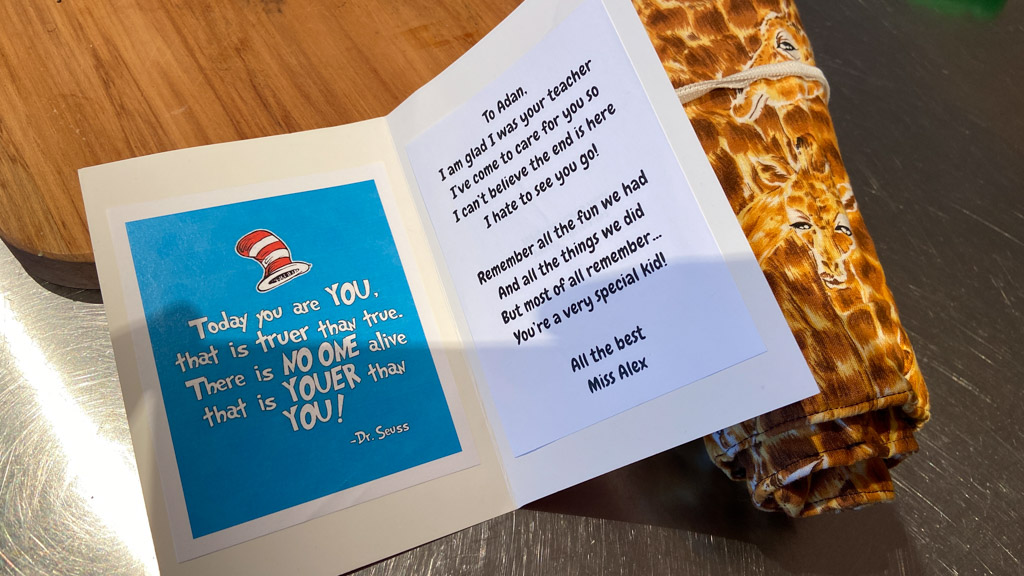 Today you are YOU,
that is truer than true.
There is NO ONE alive
that is YOUER than
YOU!
-Dr. Seuss
To Adan,
I am glad I was your teacher
I've come to care for you so
I can't believe the end is here
I hate to see you go!
Remember all the fun we had
And all the things we did
But most of all remember...
You're a very special kid!
All the best
Miss Alex